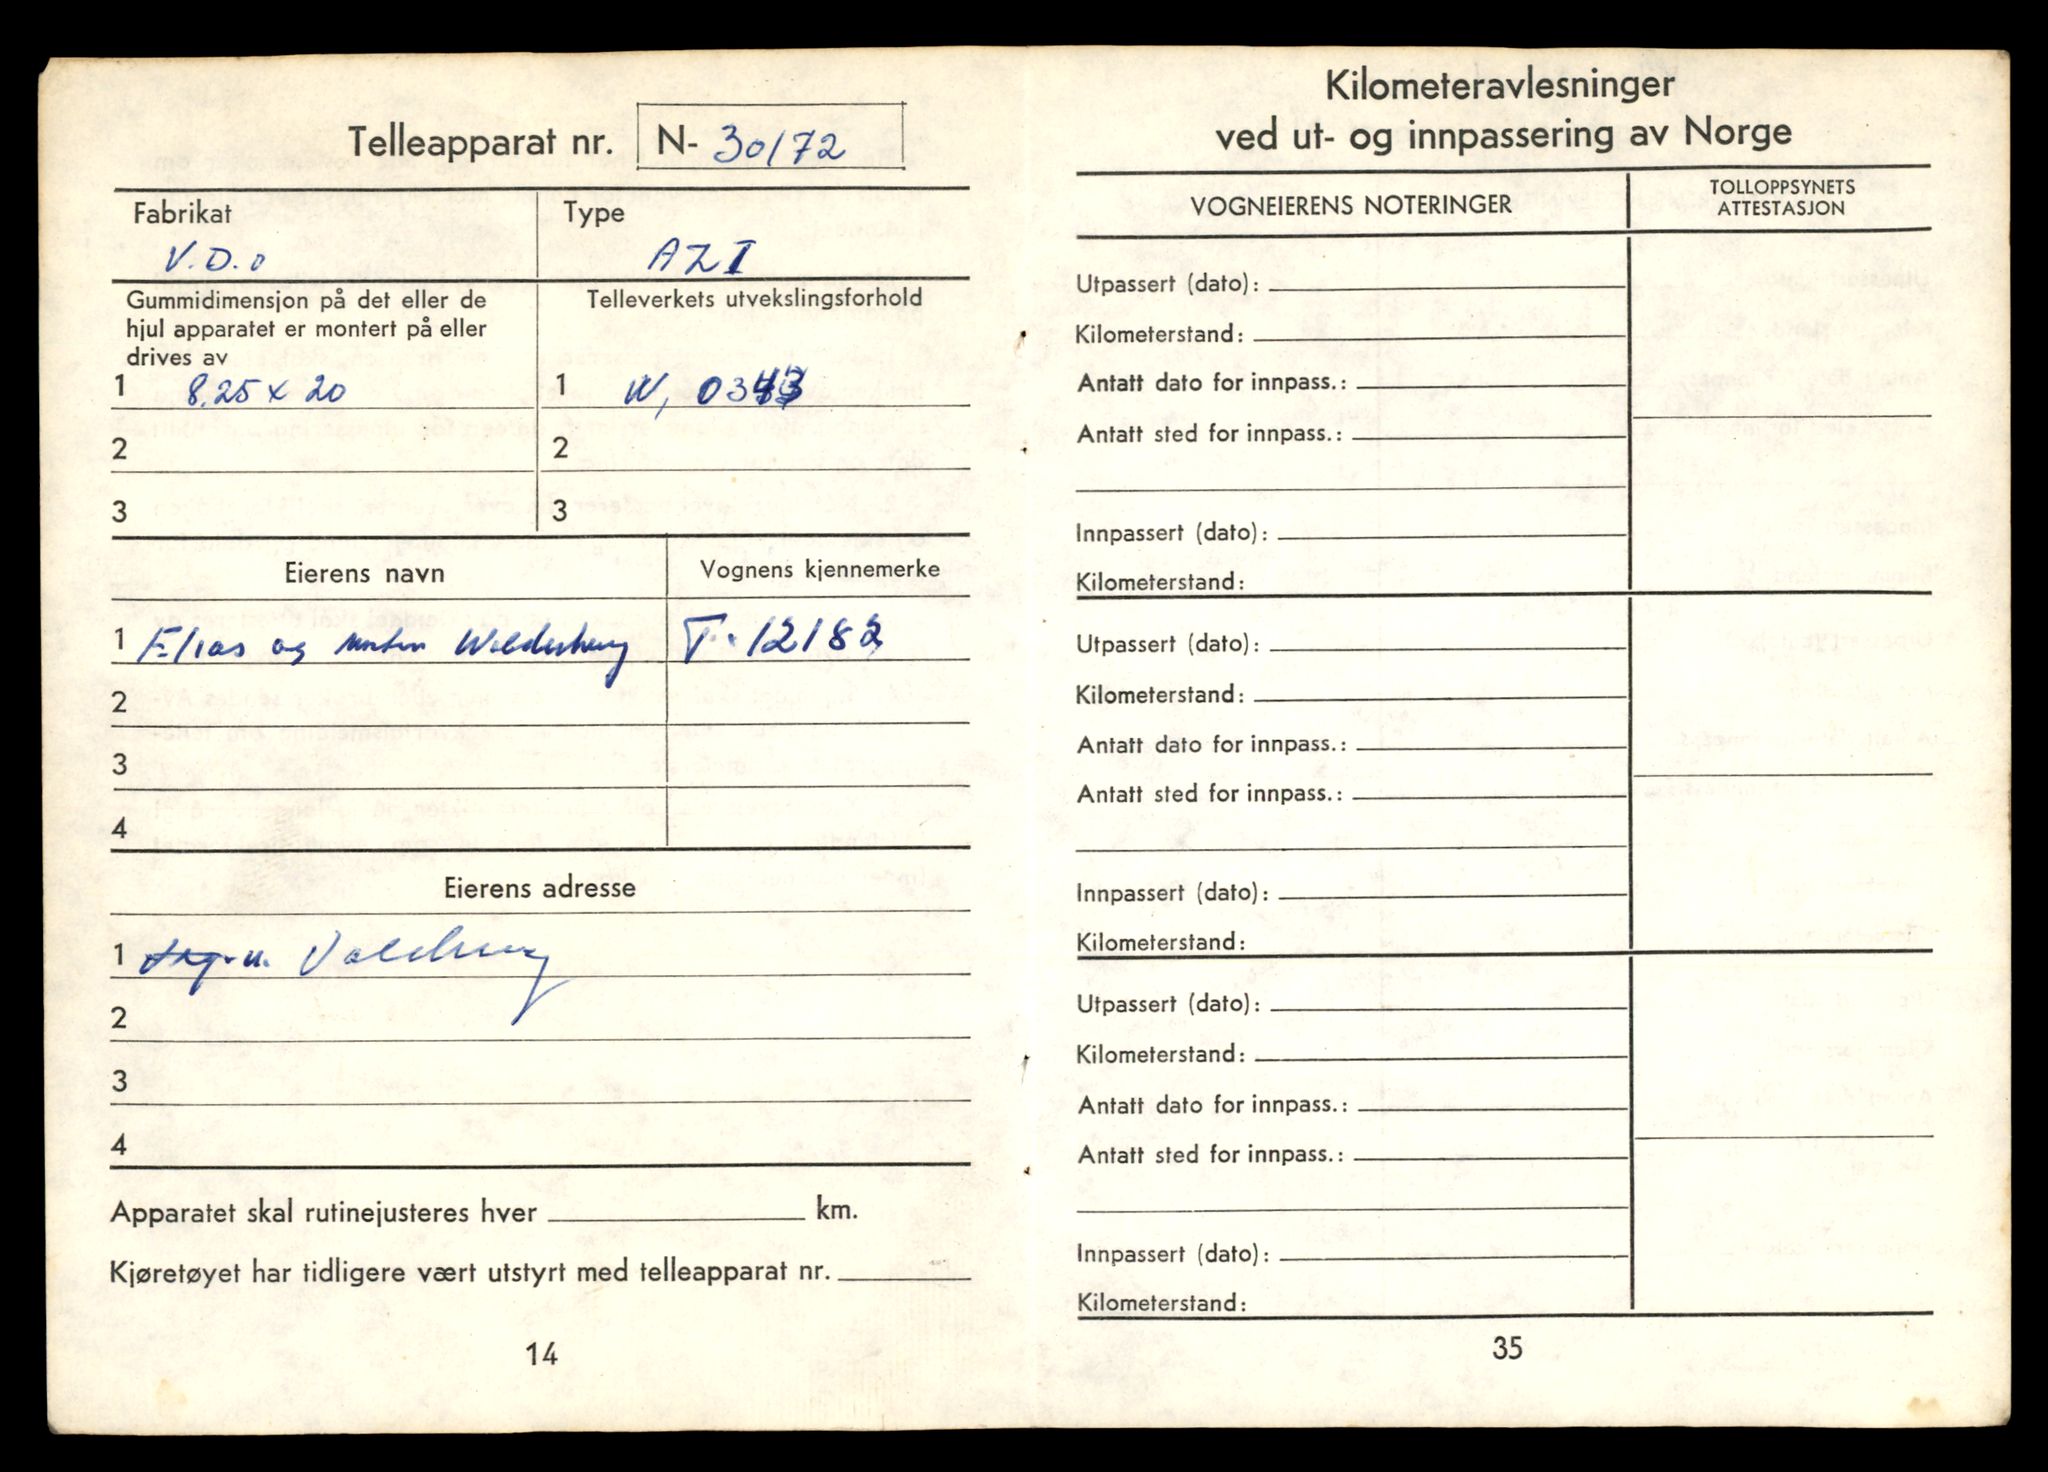 Telleapparat nr. N- 30172
Fabrikat
V.D.o
Type
AZI
Gummidimensjon på det eller de
hjul apparatet er montert på eller
drives av
1 8.25 x 20
2
3
Telleverkets utvekslingsforhold
1 W, 0343
2
3
Eierens navn
Vognens kjennemerke
1 Elias og T. 12182
2
3
4
Eierens adresse
1
2
3
4
Apparatet skal rutinejusteres hver km.
Kjøretøyet har tidligere vært utstyrt med telleapparat nr.
14
Kilometeravlesninger
ved ut- og innpassering av Norge
VOGNEIERENS NOTERINGER
TOLLOPPSYNETS
ATTESTASJON
Utpassert (dato):
Kilometerstand:
Antatt dato for innpass.:
Antatt sted for innpass.:
Innpassert (dato):
Kilometerstand:
Utpassert (dato):
Kilometerstand:
Antatt dato for innpass.:
Antatt sted for innpass.:
Innpassert (dato):
Kilometerstand:
Utpassert (dato):
Kilometerstand:
Antatt dato for innpass.:
Antatt sted for innpass.:
Innpassert (dato):
Kilometerstand:
35